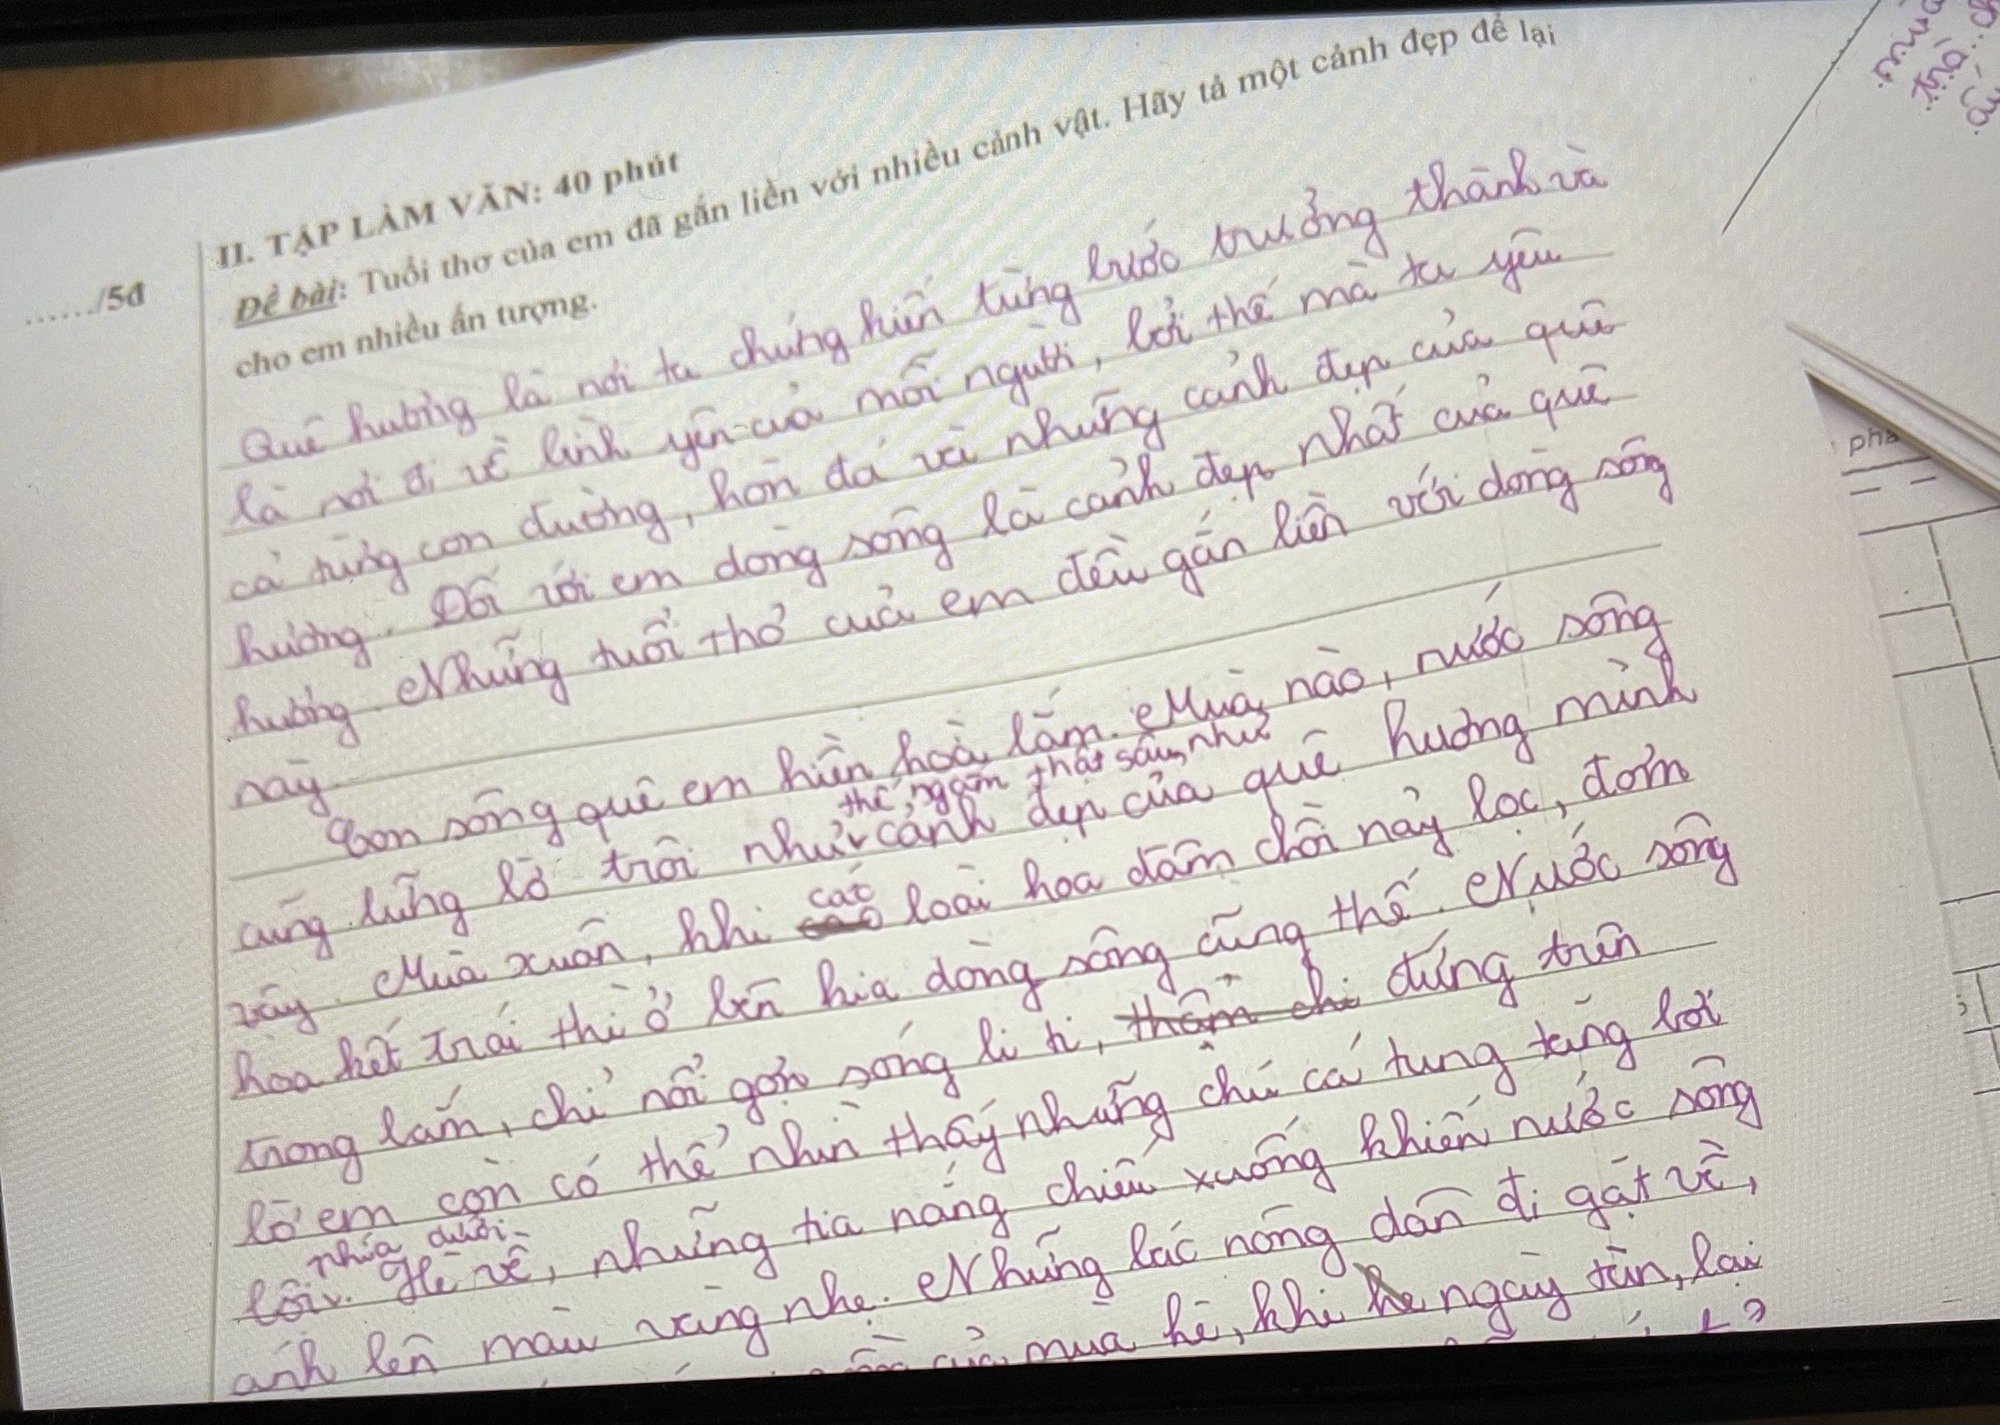 II. TẬP LÀM VĂN: 40 phút
....../5đ
Đề bài: Tuổi thơ của em đã gắn liền với nhiều cảnh vật. Hãy tả một cảnh đẹp để lại
cho em nhiều ấn tượng.
Quê hương là nơi ta chứng kiến từng bước trưởng thành và
là nơi đi về bình yên của mỗi người, bởi thế mà ta yêu
cả từng con đường, hòn đá và những cảnh đẹp của quê
hương. Đối với em dòng sông là cảnh đẹp nhất của quê
hương. Những tuổi thơ của em đều gắn liền với dòng sông
này.
Con sông quê em hiền hoà lắm. Mùa nào, nước sông
cũng lững lờ trôi như thế, ngắm thật sâu như cảnh đẹp của quê hương mình
vậy. Mùa xuân, khi các loài hoa đâm chồi nảy lộc, đơm
hoa kết trái thì ở bên kia dòng sông cũng thế. Nước sông
trong lắm, chỉ nổi gợn sóng li ti, đứng trên
bờ em còn có thể nhìn thấy những chú cá tung tăng bơi
lội phía dưới. Hè về, những tia nắng chiếu xuống khiến nước sông
ánh lên màu vàng nhẹ. Những bác nông dân đi gặt về,
của mùa hè, khi ngày tàn, lại
phá